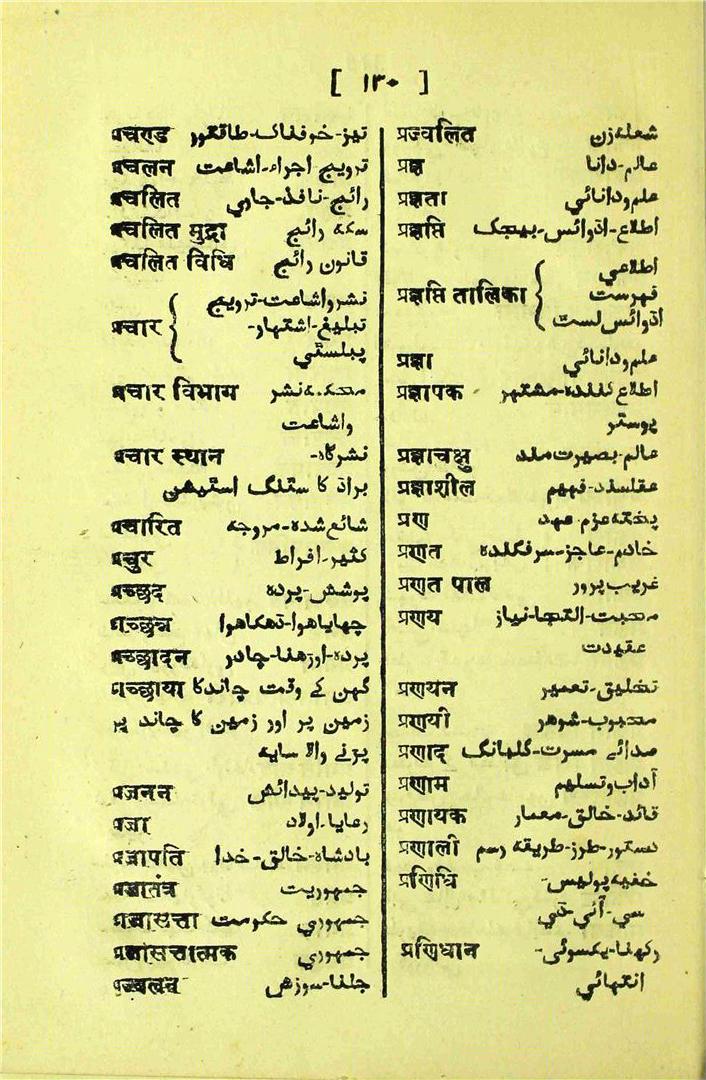 [ ١٣٠ ]
प्रचण्ड تیز-خوفناک-طاقتور
प्रचलन ترویج اجراء-اشاعت
प्रचलित رائج-نافذ-جاری
प्रचलित मुद्रा سکه رائج
प्रचलित विधि قانون رائج
نشرواشاعت-ترویج
प्रचार { تبلیغ-اشتهار-
پبلسٹی
प्रचार विभाग محکمه نشر
واشاعت
प्रचार स्थान نشرگاه-
براڈ کا سٹنگ اسٹیشن
प्रचारित شائع شده-مروجه
प्रचुर کثیر-افراط
प्रच्छद پوشش-پرده
प्रच्छन्न چھپایاهوا-ڈھکاهوا
प्रच्छादन پرده-اوڑھنا-چادر
प्रच्छाया گہن کے وقت چاندکا
زمین پر اور زمین کا چاند پر
پڑنے والا سایه
प्रजनन تولید-پیدائش
प्रजा رعایا-اولاد
प्रजापति بادشاه-خالق-خدا
प्रजातंत्र جمهوریت
प्रजासत्ता جمهوری حکومت
प्रजासत्तात्मक جمهوری
प्रज्वलन جلنا-سوزش
प्रज्वलित شعلهزن
प्रज्ञ عالم-دانا
प्रज्ञता علم ودانائی
प्रज्ञप्ति اطلاع-اڈوائس-بیجک
اطلاعی
प्रज्ञप्ति तालिका { فہرست
اڈوائس لسٹ
प्रज्ञा علم ودانائی
प्रज्ञापक اطلاع کننده-مشتہر
پوسٹر
प्रज्ञाचक्षु عالم-بصیرت مند
प्रज्ञाशील عقلمند-فہیم
प्रण پخته عزم-عہد
प्रणत خادم-عاجز-سرفگنده
प्रणत पाल غریب پرور
प्रणय محبت-التجا-نیاز
عقیدت
प्रणयन تخلیق-تعمیر
प्रणयी محبوب-شوهر
प्रणाद صدائے مسرت-گلبانگ
प्रणाम آداب وتسلیم
प्रणायक قائد-خالق-معمار
प्रणाली دستور-طرز-طریقه رسم
प्रणिधि خفیه پولیس-
سی-آئی-ڈی
प्रणिधान رکھنا-یکسوئی-
انتہائی